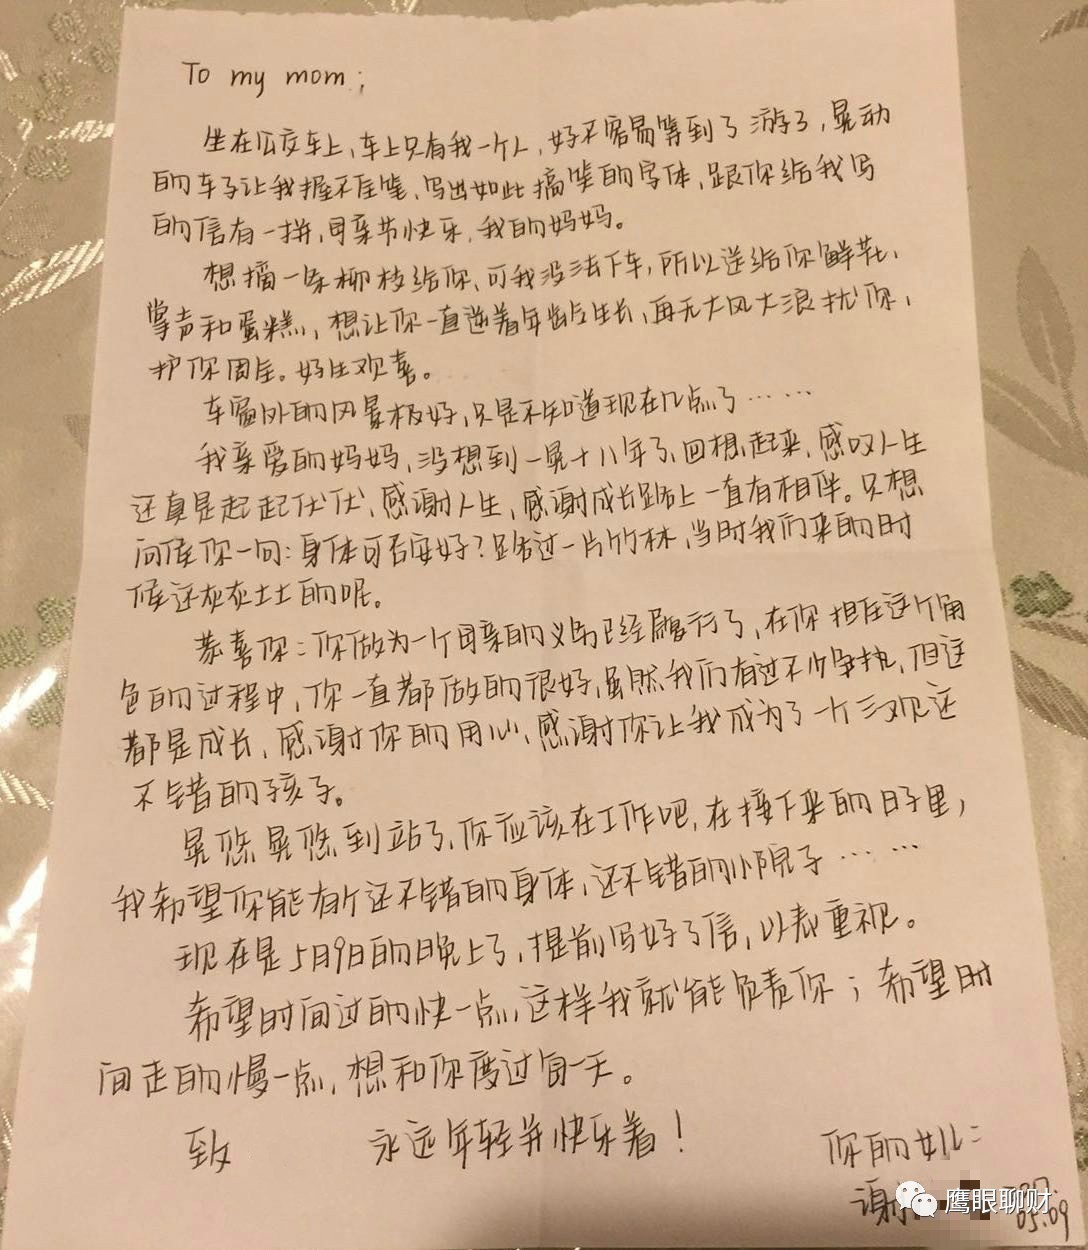 To my mom:
坐在公交车上,车上只有我一个人,好不容易等到了游了,晃动
的车子让我握不住笔,写出如此搞笑的字体,跟你给我写
的信有一拼,母亲节快乐,我的妈妈。
想摘一条柳枝给你,可我没法下车,所以送给你鲜花、
掌声和蛋糕,想让你一直逆着年龄生长,再无大风大浪扰你,
护你周全。好生欢喜。
车窗外的风景极好,只是不知道现在几点了……
我亲爱的妈妈,没想到一晃十八年了,回想起来,感叹人生
还真是起起伏伏,感谢人生,感谢成长路上一直有相伴。只想
问候你一句:身体可否安好?路过一片竹林,当时我们来的时
候还灰灰土土的呢。
恭喜你:你做为一个母亲的义务已经履行了,在你担任这个角
色的过程中,你一直都做的很好,虽然我们有过不少争执,但这
都是成长,感谢你的用心,感谢你让我成为了一个三观还
不错的孩子。
晃悠晃悠到站了,你应该在工作吧,在接下来的日子里,
我希望你能有个还不错的身体,还不错的小院子……
现在是5月9日的晚上了,提前写好了信,以表重视。
希望时间过的快一点,这样我就能负责你;希望时
间走的慢一点,想和你度过每一天。
致 永远年轻并快乐着!
你的女儿:
谢
05.09
鹰眼聊财